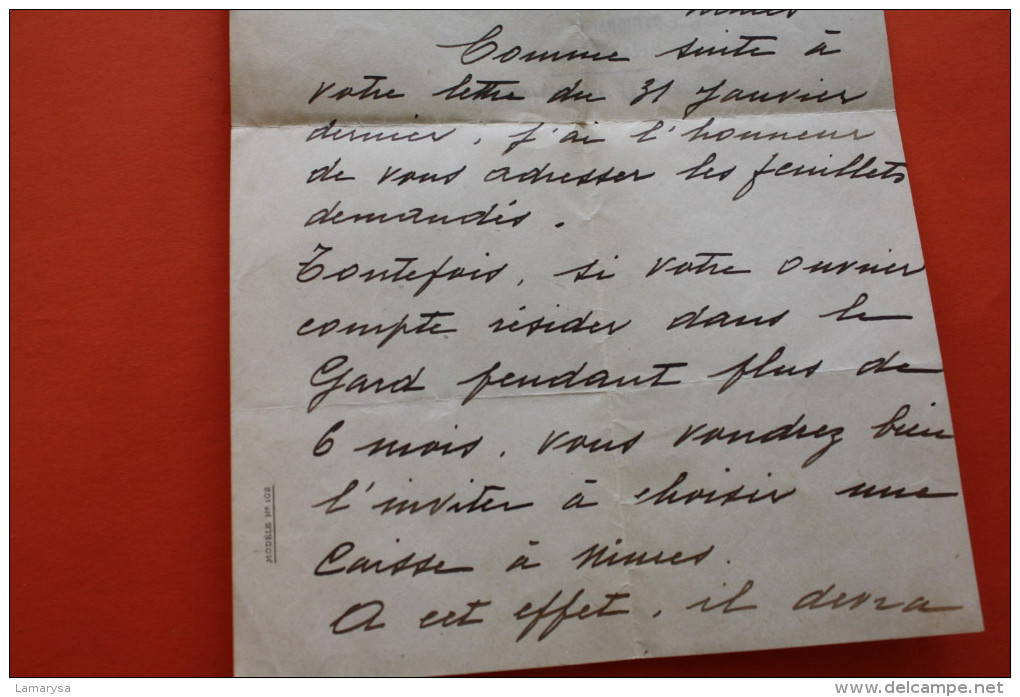 Comme suite à
votre lettre du 31 Janvier
dernier, j'ai l'honneur
de vous adresser les feuillets
demandés.
Toutefois, si votre ouvrier
compte résider dans le
Gard pendant plus de
6 mois, vous voudrez bien
l'inviter à choisir une
Caisse à Nîmes.
A cet effet, il devra
MODÈLE N° 102
Lamarysa
www.delcampe.net